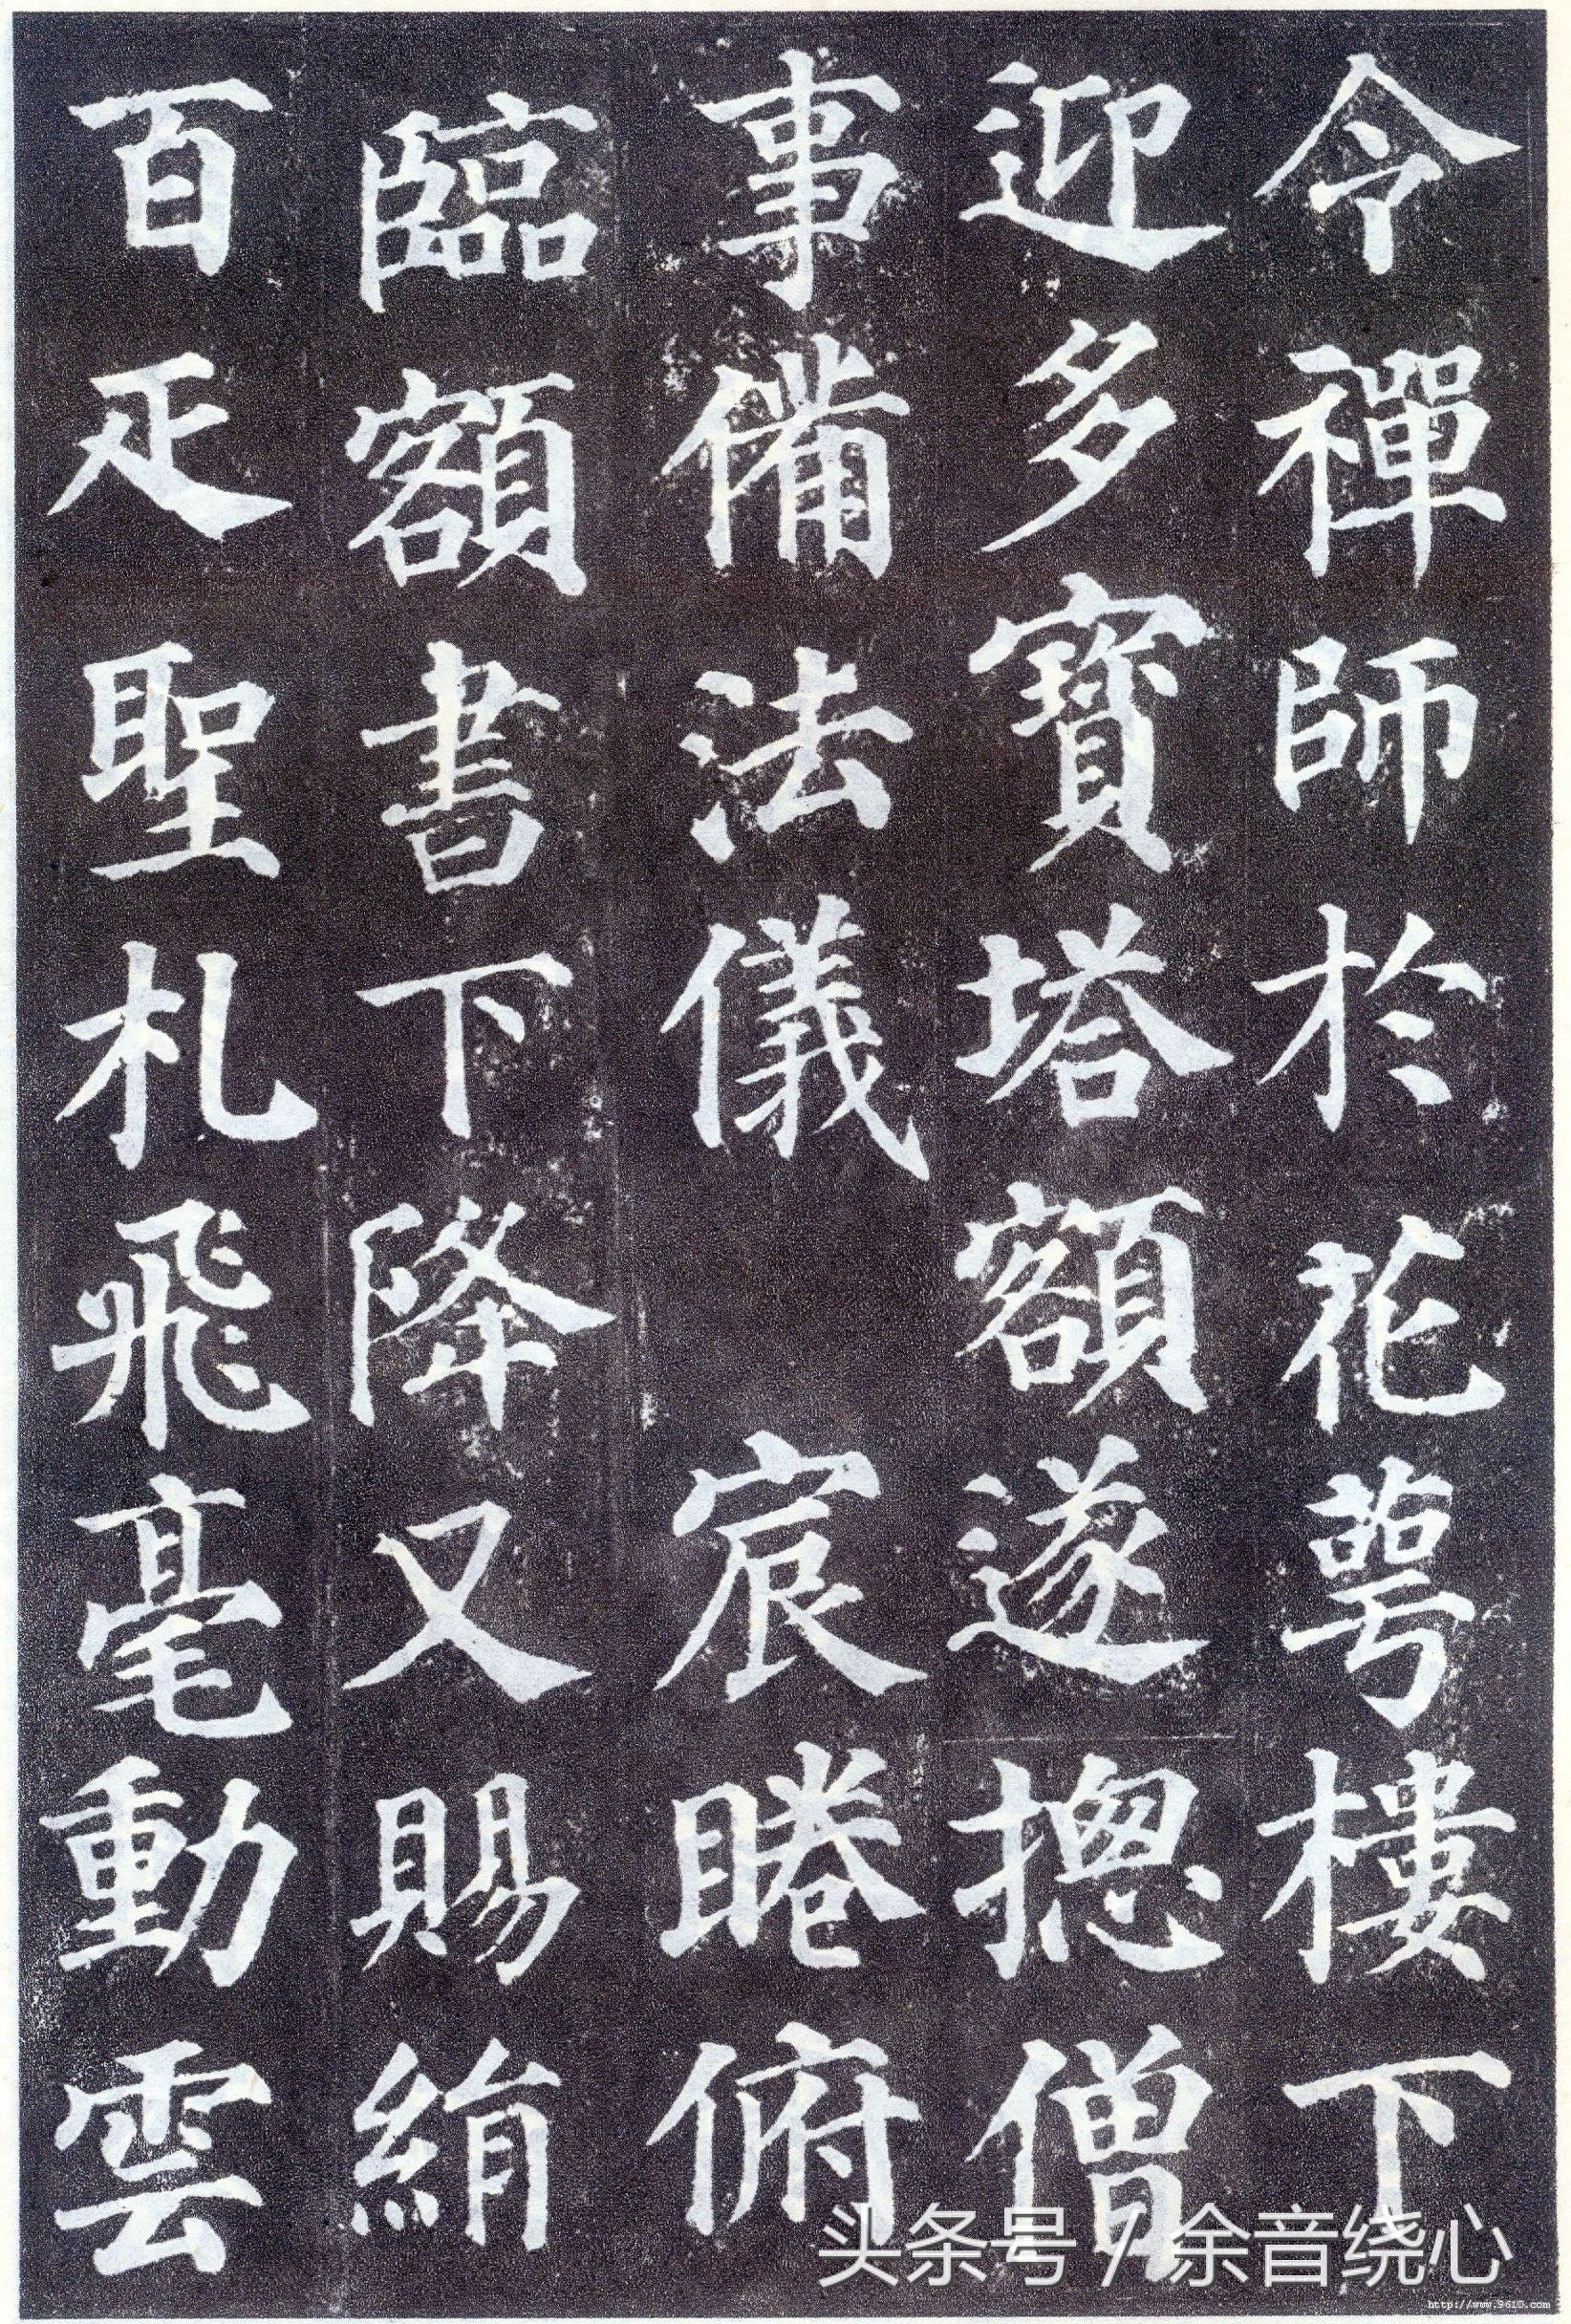 令禪師於花萼樓下
迎多寶塔額遂摠僧
事備法儀 宸睠俯
臨額書下降又賜絹
百疋聖札飛毫動雲
头条号 / 余音绕心
http://www.9610.com